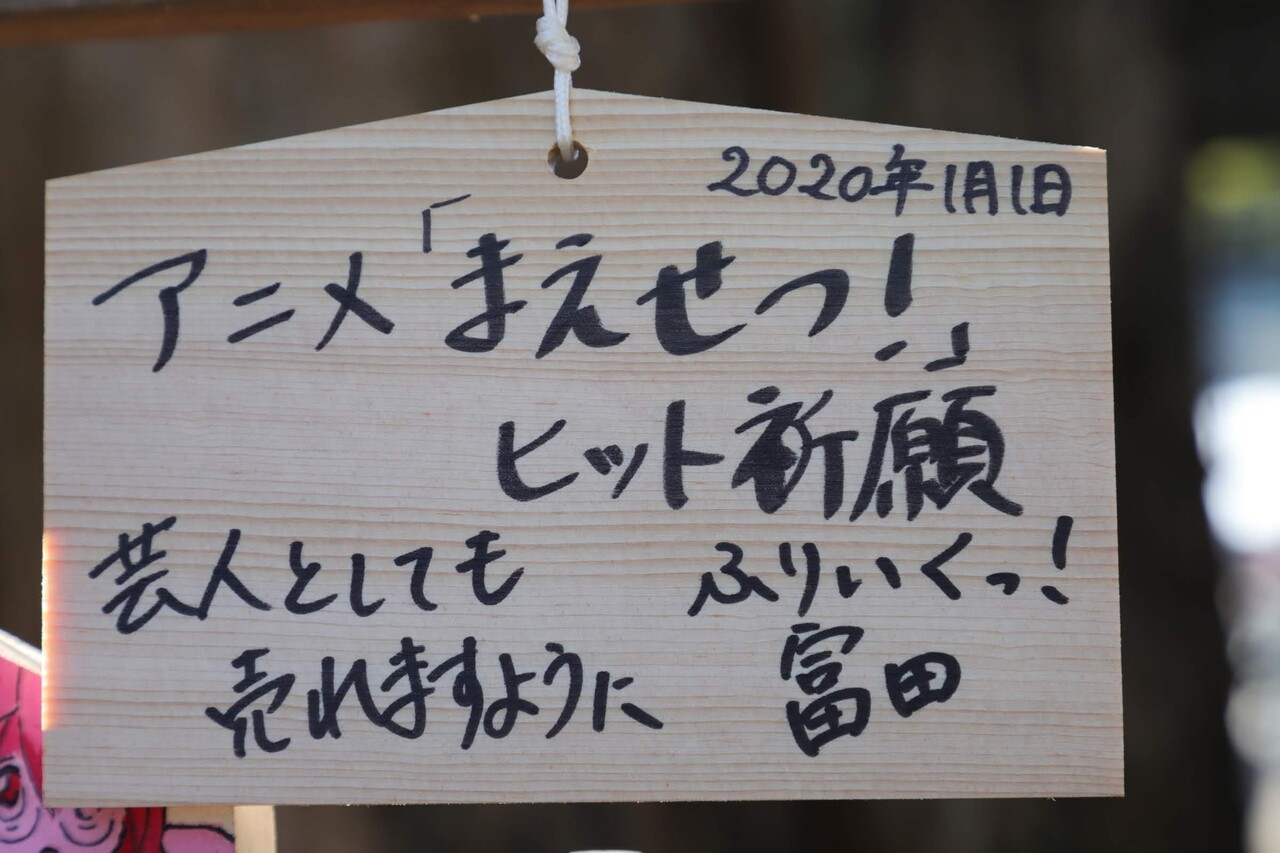 2020年1月1日
アニメ「まえせつ!」
ヒット祈願
芸人としても
売れますように
ふりいくっ!
富田